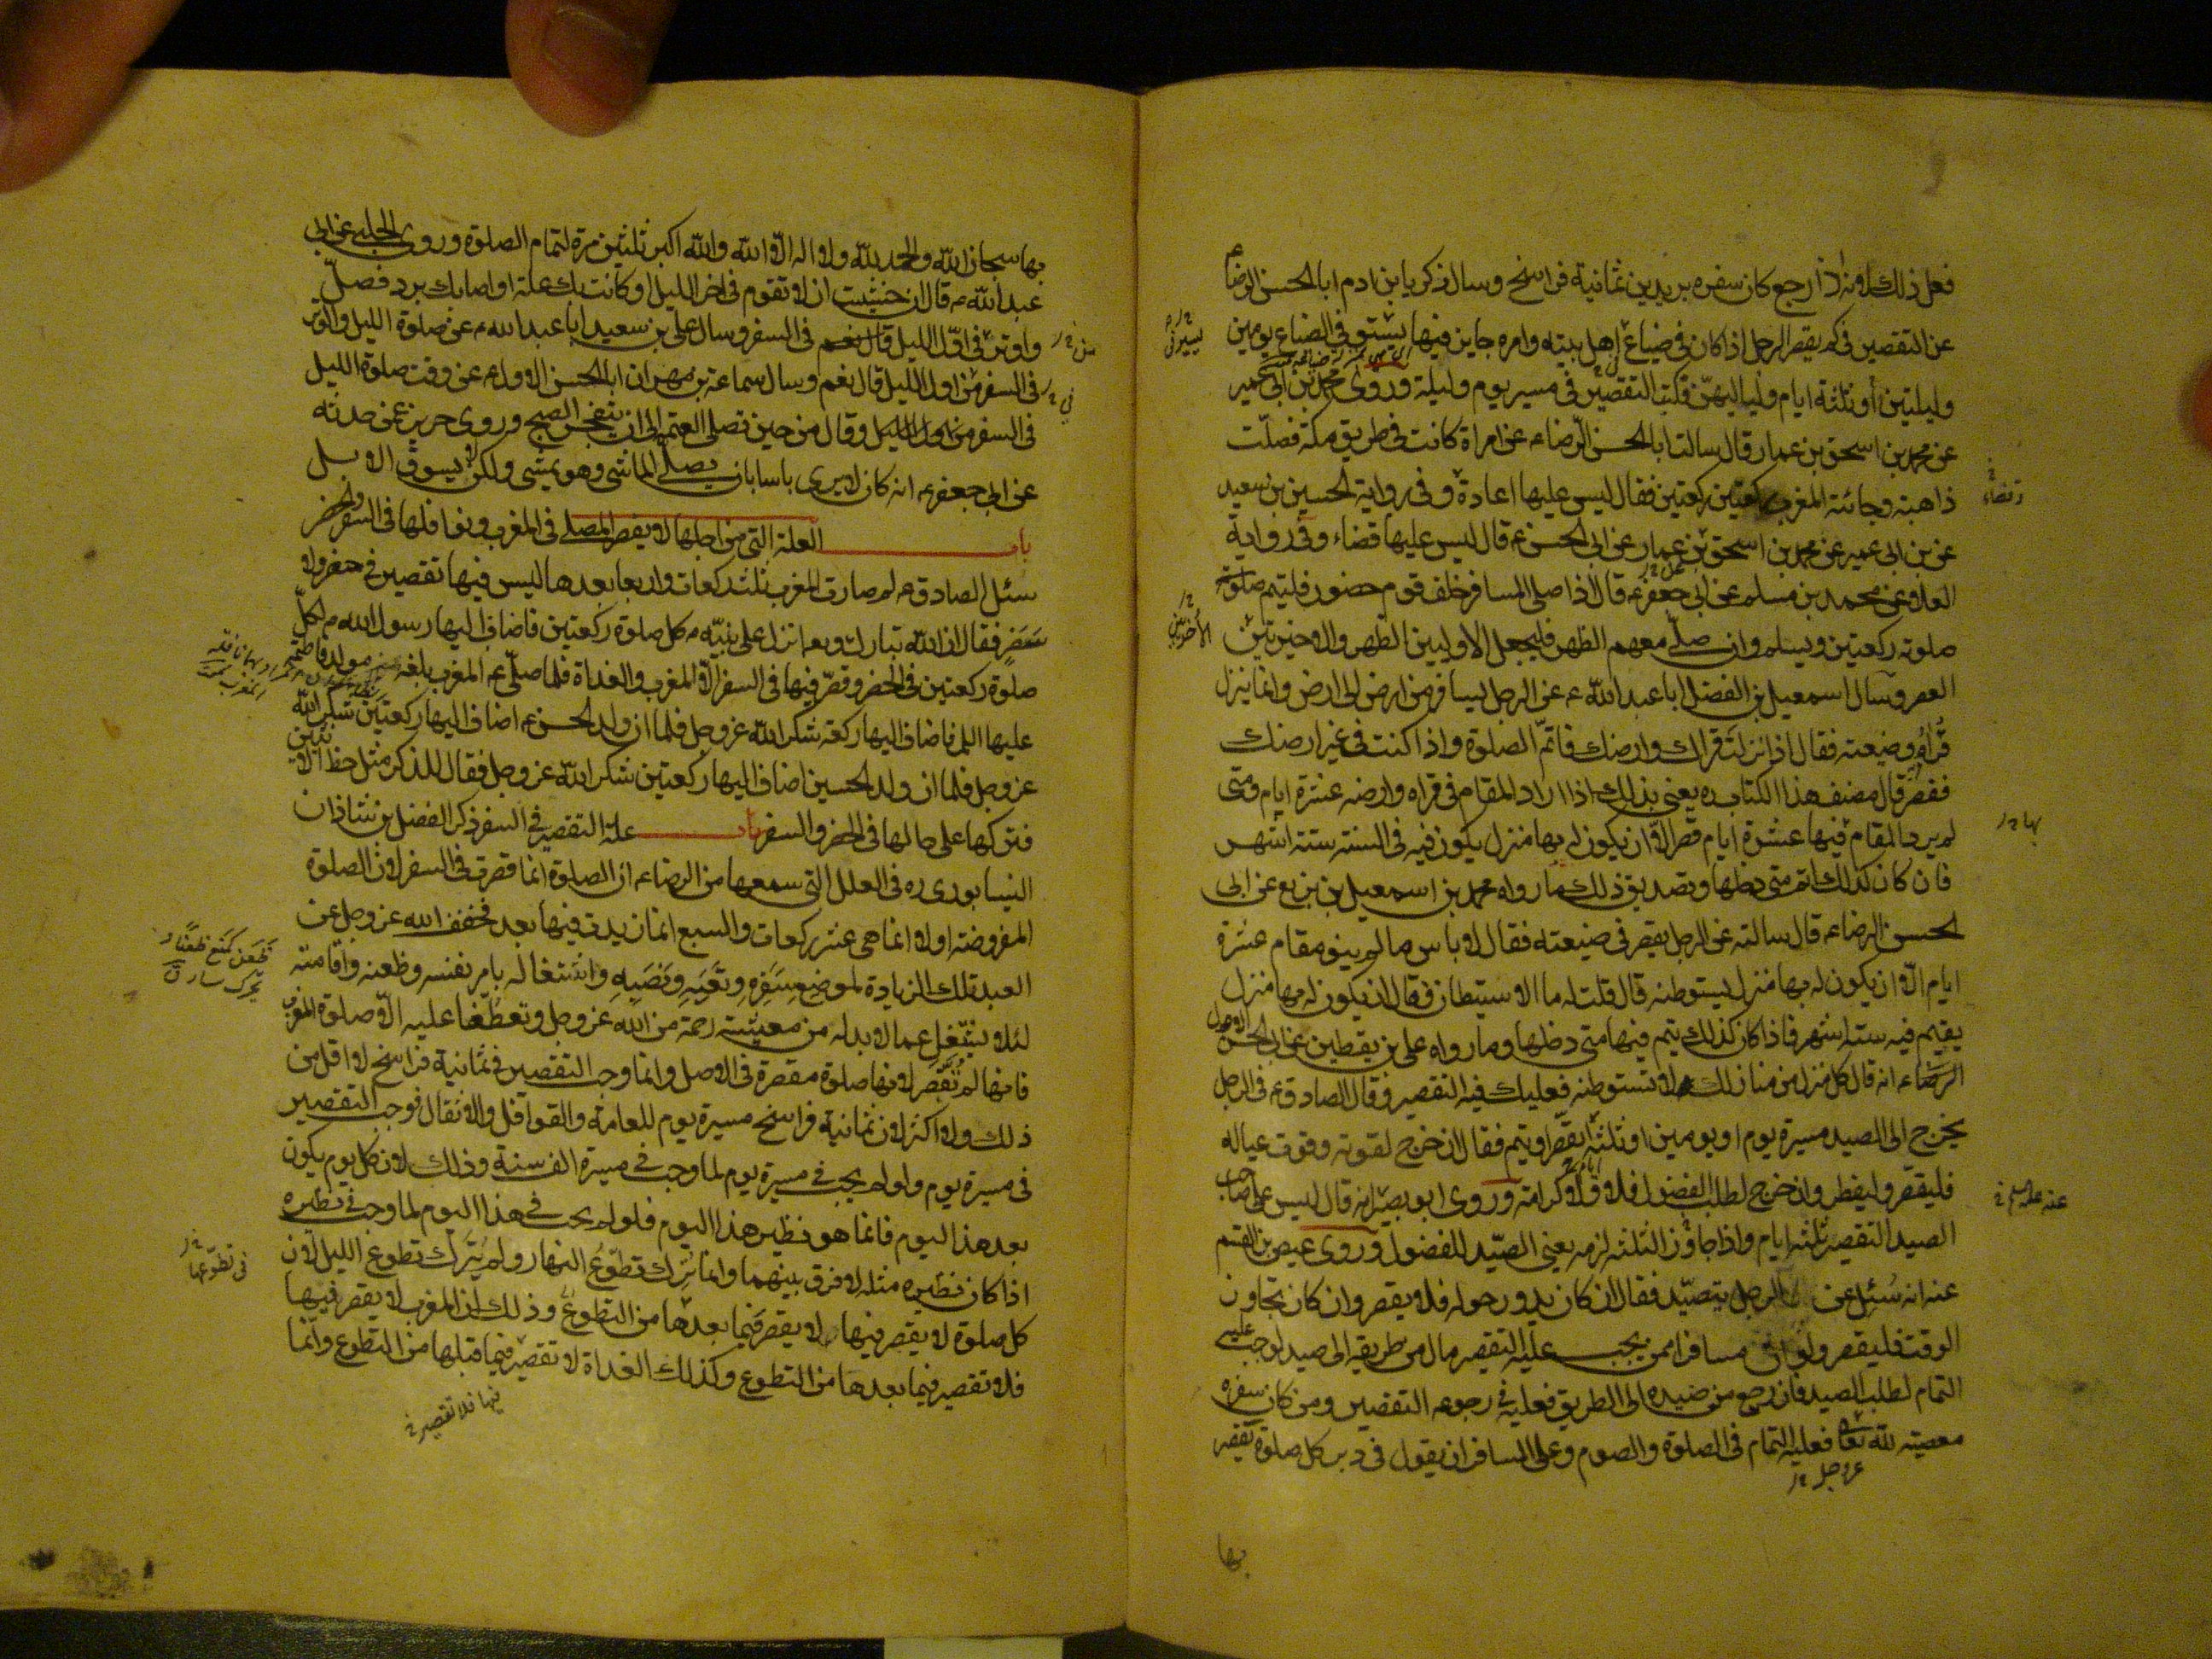 فعل ذلك لانه اذا رجع كان سفره بريدين ثمانية فراسخ وسال زكريا بن ادم ابا الحسن الرضا ع
عن التقصير في كم يقصر الرجل اذا كان في ضياع اهل بيته وامره جايز فيها يسير في الضياع يومين
وليلتين أو ثلثة ايام ولياليهن فكتب التقصير في مسير يوم وليلة وروى محمد بن ابي عمير
عن محمد بن اسحق بن عمار قال سالت ابا الحسن الرضا ء عن امراة كانت في طريق مكة فصلت
ذاهبة وجائية المغرب ركعتين ركعتين فقال ليس عليها اعادة وفي رواية الحسين بن سعيد
عن بن ابي عمير عن محمد بن اسحق بن عمار عن ابي الحسن ء قال ليس عليها قضاء وفي رواية
العلا عن محمد بن مسلم عن ابي جعفر ء قال اذا صلى المسافر خلف قوم حضور فليتم صلوته
صلوته ركعتين ويسلم وان صلى معهم الظهر فليجعل الاوليين الظهر والاخيرتين
العصر وسال اسمعيل بن الفضل ابا عبد الله ء عن الرجل يسافر من ارض الى ارض وانما ينزل
قراه وضيعته فقال اذا نزلت قراك وارضك فاتم الصلوة واذا كنت في غير ارضك
فقصر قال مصنف هذا الكتاب ره يعني بذلك اذا اراد المقام في قراه وارضه عشرة ايام ومتى
لم يرد المقام فيها عشرة ايام قصر الا ان يكون له بها منزل يكون فيه في السنة ستة اشهر
فان كان كذلك اتم متى دخلها وتصديق ذلك ما رواه محمد بن اسمعيل بن بزيع عن ابي
الحسن الرضا ء قال سالته عن الرجل يقصر في ضيعته فقال لا باس ما لم ينو مقام عشرة
ايام الا ان يكون له بها منزل يستوطنه قال قلت له ما الاستيطان فقال ان يكون له بها منزل
يقيم فيه ستة اشهر فاذا كان كذلك يتم فيها متى دخلها وما رواه علي بن يقطين عن ابي الحسن الاول
الرضا ء انه قال كل منزل من منازلك لا تستوطنه فعليك فيه التقصير وقال الصادق ء في الرجل
يخرج الى الصيد مسيرة يوم او يومين او ثلثة ايقصر او يتم فقال ان خرج لقوته وقوت عياله
فليقصر وليفطر وان خرج لطلب الفضول فلا ولا كرامة وروى ابو بصير انه قال ليس على صاحب
الصيد التقصير ثلثة ايام واذا جاوز الثلثة لزمه يعني الصيد للفضول وروى عيص بن القسم
عنه انه سئل عن الرجل يتصيد فقال ان كان يدور حوله فلا يقصر وان كان تجاوز
الوقت فليقصر ولو ان مسافرا ممن يجب عليه التقصير مال من طريقه الى صيد لوجب عليه
التمام لطلب الصيد فان رجع من صيده الى الطريق فعليه في رجوعه التقصير ومن كان سفره
معصية لله تعالى فعليه التمام في الصلوة والصوم وعلى المسافر ان يقول في دبر كل صلوة يقصر
عز وجل
بها
بها سبحان الله والحمد لله ولا اله الا الله والله اكبر ثلثين مرة لتمام الصلوة وروى الحلبي عن ابي
عبد الله ء قال ان خشيت ان لا تقوم في اخر الليل او كانت بك علة او اصابك برد فصل
واوتر في اول الليل في السفر وسال علي بن سعيد ابا عبد الله ء عن صلوة الليل والوتر
في السفر من اول الليل قال نعم وسال سماعة بن مهران ابا الحسن الاول ء عن وقت صلوة الليل
في السفر وقال من حين تصلي العتمة الى ان ينفجر الصبح وروى حريز عمن حدثه
عن ابي جعفر ء انه كان لا يرى باسا بان يصلي الماشي وهو يمشي ولكن لا يسوق الابل
باب العلة التي من اجلها لا يقصر المصلي في المغرب ونوافلها في السفر والحضر
سئل الصادق ء لم صارت المغرب ثلث ركعات واربعا بعدها ليس فيها تقصير في حضر ولا
سفر فقال ان الله تبارك وتعالى انزل على نبيه م كل صلوة ركعتين فاضاف اليها رسول الله م لكل
صلوة ركعتين في الحضر وقصر فيها في السفر الا المغرب والغداة فلما صلى ء المغرب بلغه مولد فاطمة
عليها السلم فاضاف اليها ركعة شكرا لله عز وجل فلما ان ولد الحسن ء اضاف اليها ركعتين شكرا لله
عز وجل فلما ان ولد الحسين اضاف اليها ركعتين شكرا لله عز وجل فقال للذكر مثل حظ الانثيين
فتركها على حالها في الحضر والسفر باب علة التقصير في السفر ذكر الفضل بن شاذان
النيسابوري ره في العلل التي سمعها من الرضا ء ان الصلوة انما قصرت في السفر لان الصلوة
المفروضة اولا انما هي عشر ركعات والسبع انما زيدت فيها بعد فخفف الله عز وجل عن
العبد تلك الزيادة لموضع سفره وتعبه ونصبه واشتغاله بامر نفسه وظعنه واقامته
لئلا يشتغل عما لا بد له من معيشته رحمة من الله عز وجل وتعطفا عليه الا صلوة المغرب
فانها لم تقصر لانها صلوة مقصرة في الاصل وانما وجب التقصير في ثمانية فراسخ لا اقل من
ذلك ولا اكثر لان ثمانية فراسخ مسيرة يوم للعامة والقوافل والاثقال فوجب التقصير
في مسيرة يوم ولو لم يجب في مسيرة يوم لما وجب في مسيرة الف سنة وذلك لان كل يوم يكون
بعد هذا اليوم فانما هو نظير هذا اليوم فلو لم يجب في هذا اليوم لما وجب في نظيره
اذا كان نظيره مثله لا فرق بينهما وانما ترك تطوع النهار ولم يترك تطوع الليل لان
كل صلوة لا يقصر فيها لا يقصر فيما بعدها من التطوع وذلك ان المغرب لا يقصر فيها
فلا تقصير فيما بعدها من التطوع وكذلك الغداة لا تقصير فيما قبلها من التطوع وانما
فيها فلا تقصير